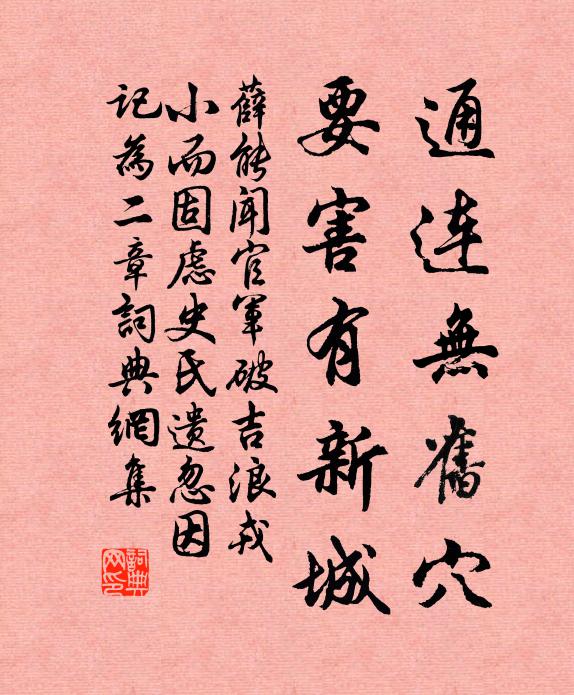 通連無舊穴
要害有新城
薛能聞官軍破吉浪戎
小而固慮史氏遺忽因
記為二章詞典網集
詞典网印